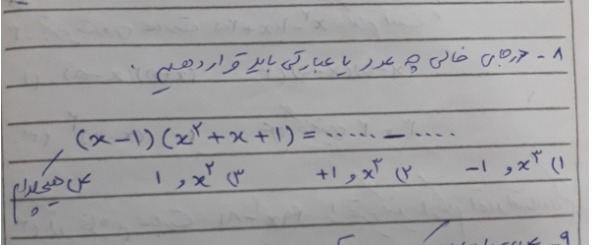 ۸- در جای خالی چه عدد یا عبارتی باید قرار دهیم.
(x-1)(x²+x+1) = ..... - ....
۱) x³ و -1 ۲) x³ و +1 ۳) x² و 1 ۴) هیچکدام
۹-